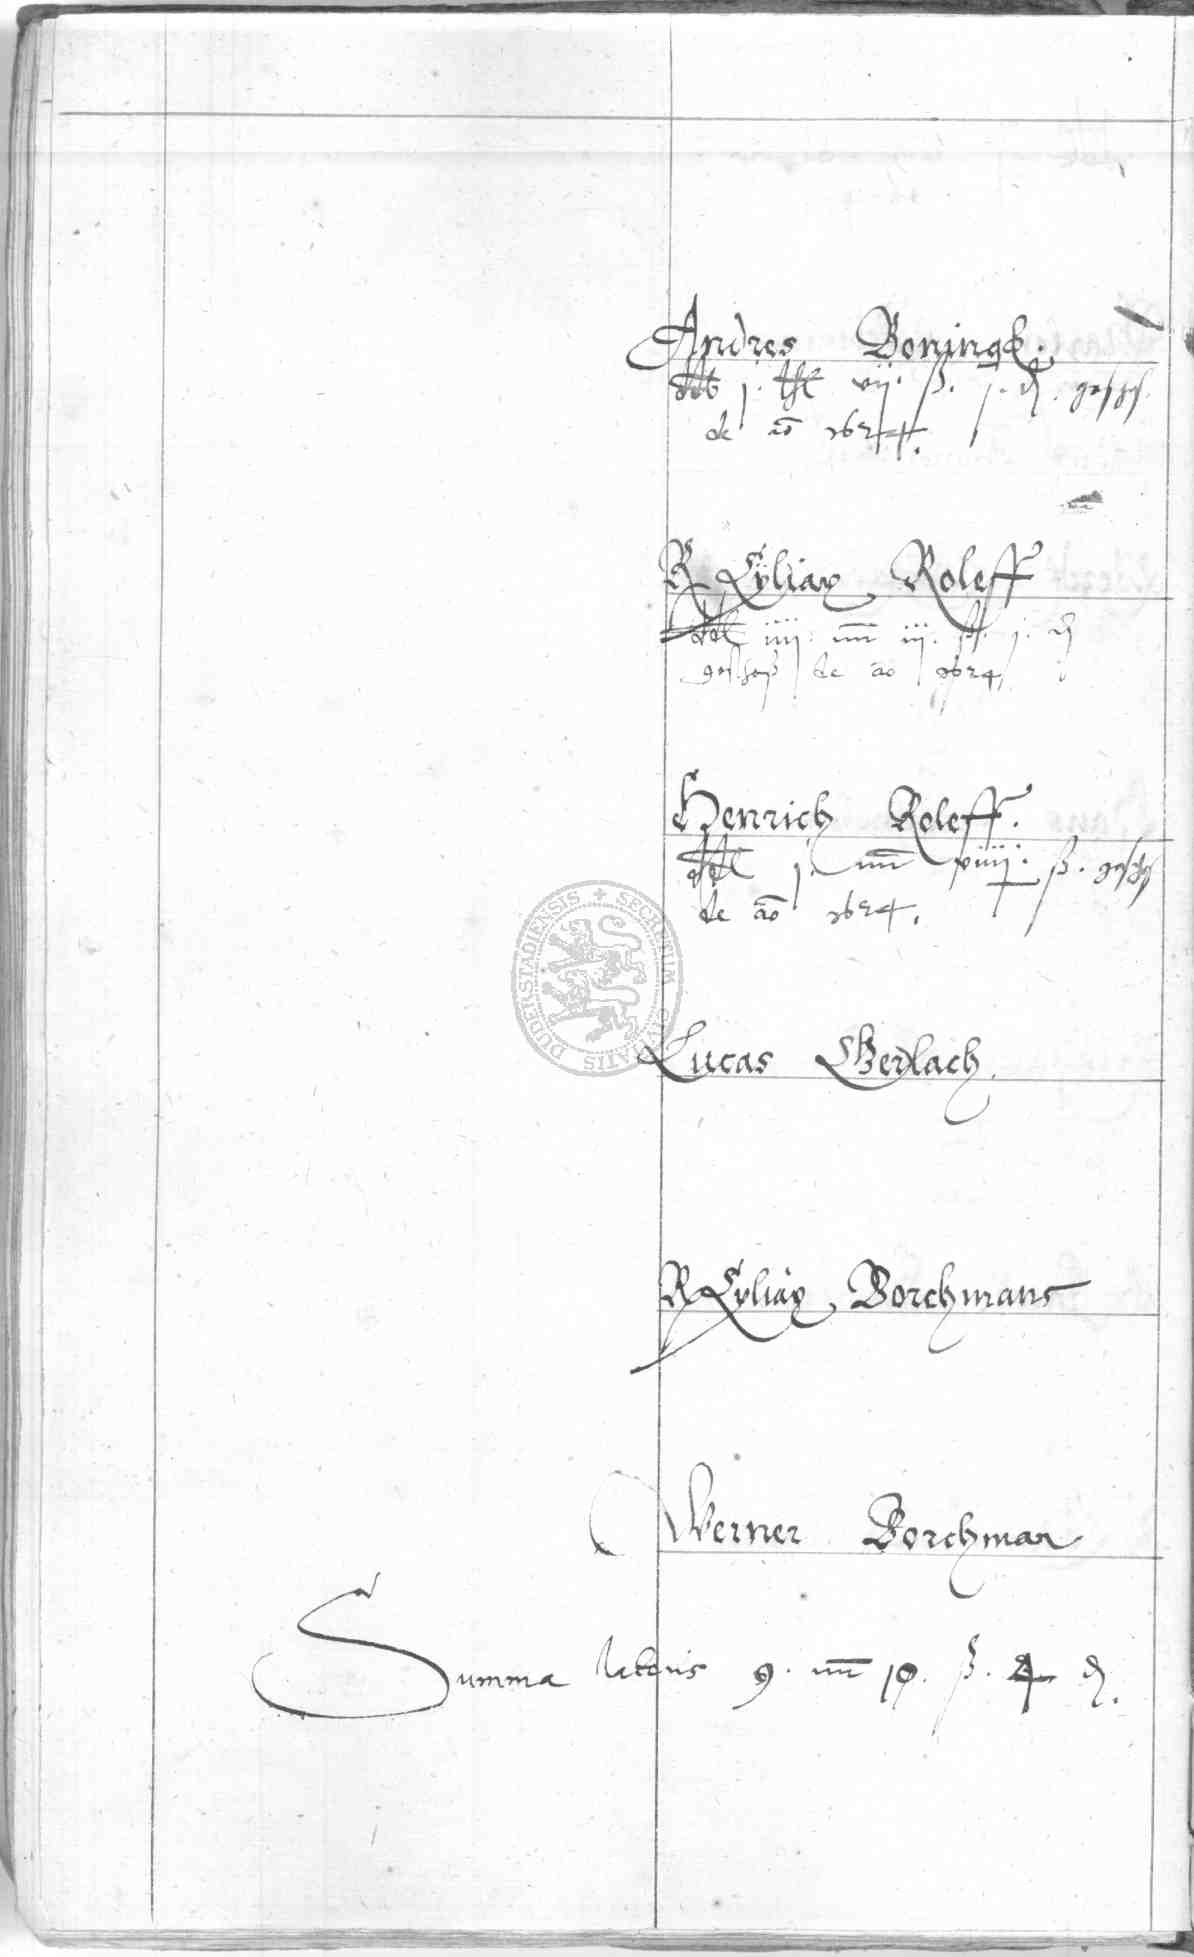 Andres Boningk.
ddt j. thl vij. ß. j. ₰. geschs.
de ao 1624.
R Cyliax Roleff
ddt iiij. m iij. ß. j. ₰
geschoß de ao 1624
Henrich Roleff.
ddt j. m viiij. ß. geschs
de ao 1624.
SECRETUM CIVITATIS DUDERSTADIENSIS
Lucas Gerlach.
R Cyliax Borchmans
Werner Borchman
Summa lateris 9. m 10. ß. 4 ₰.